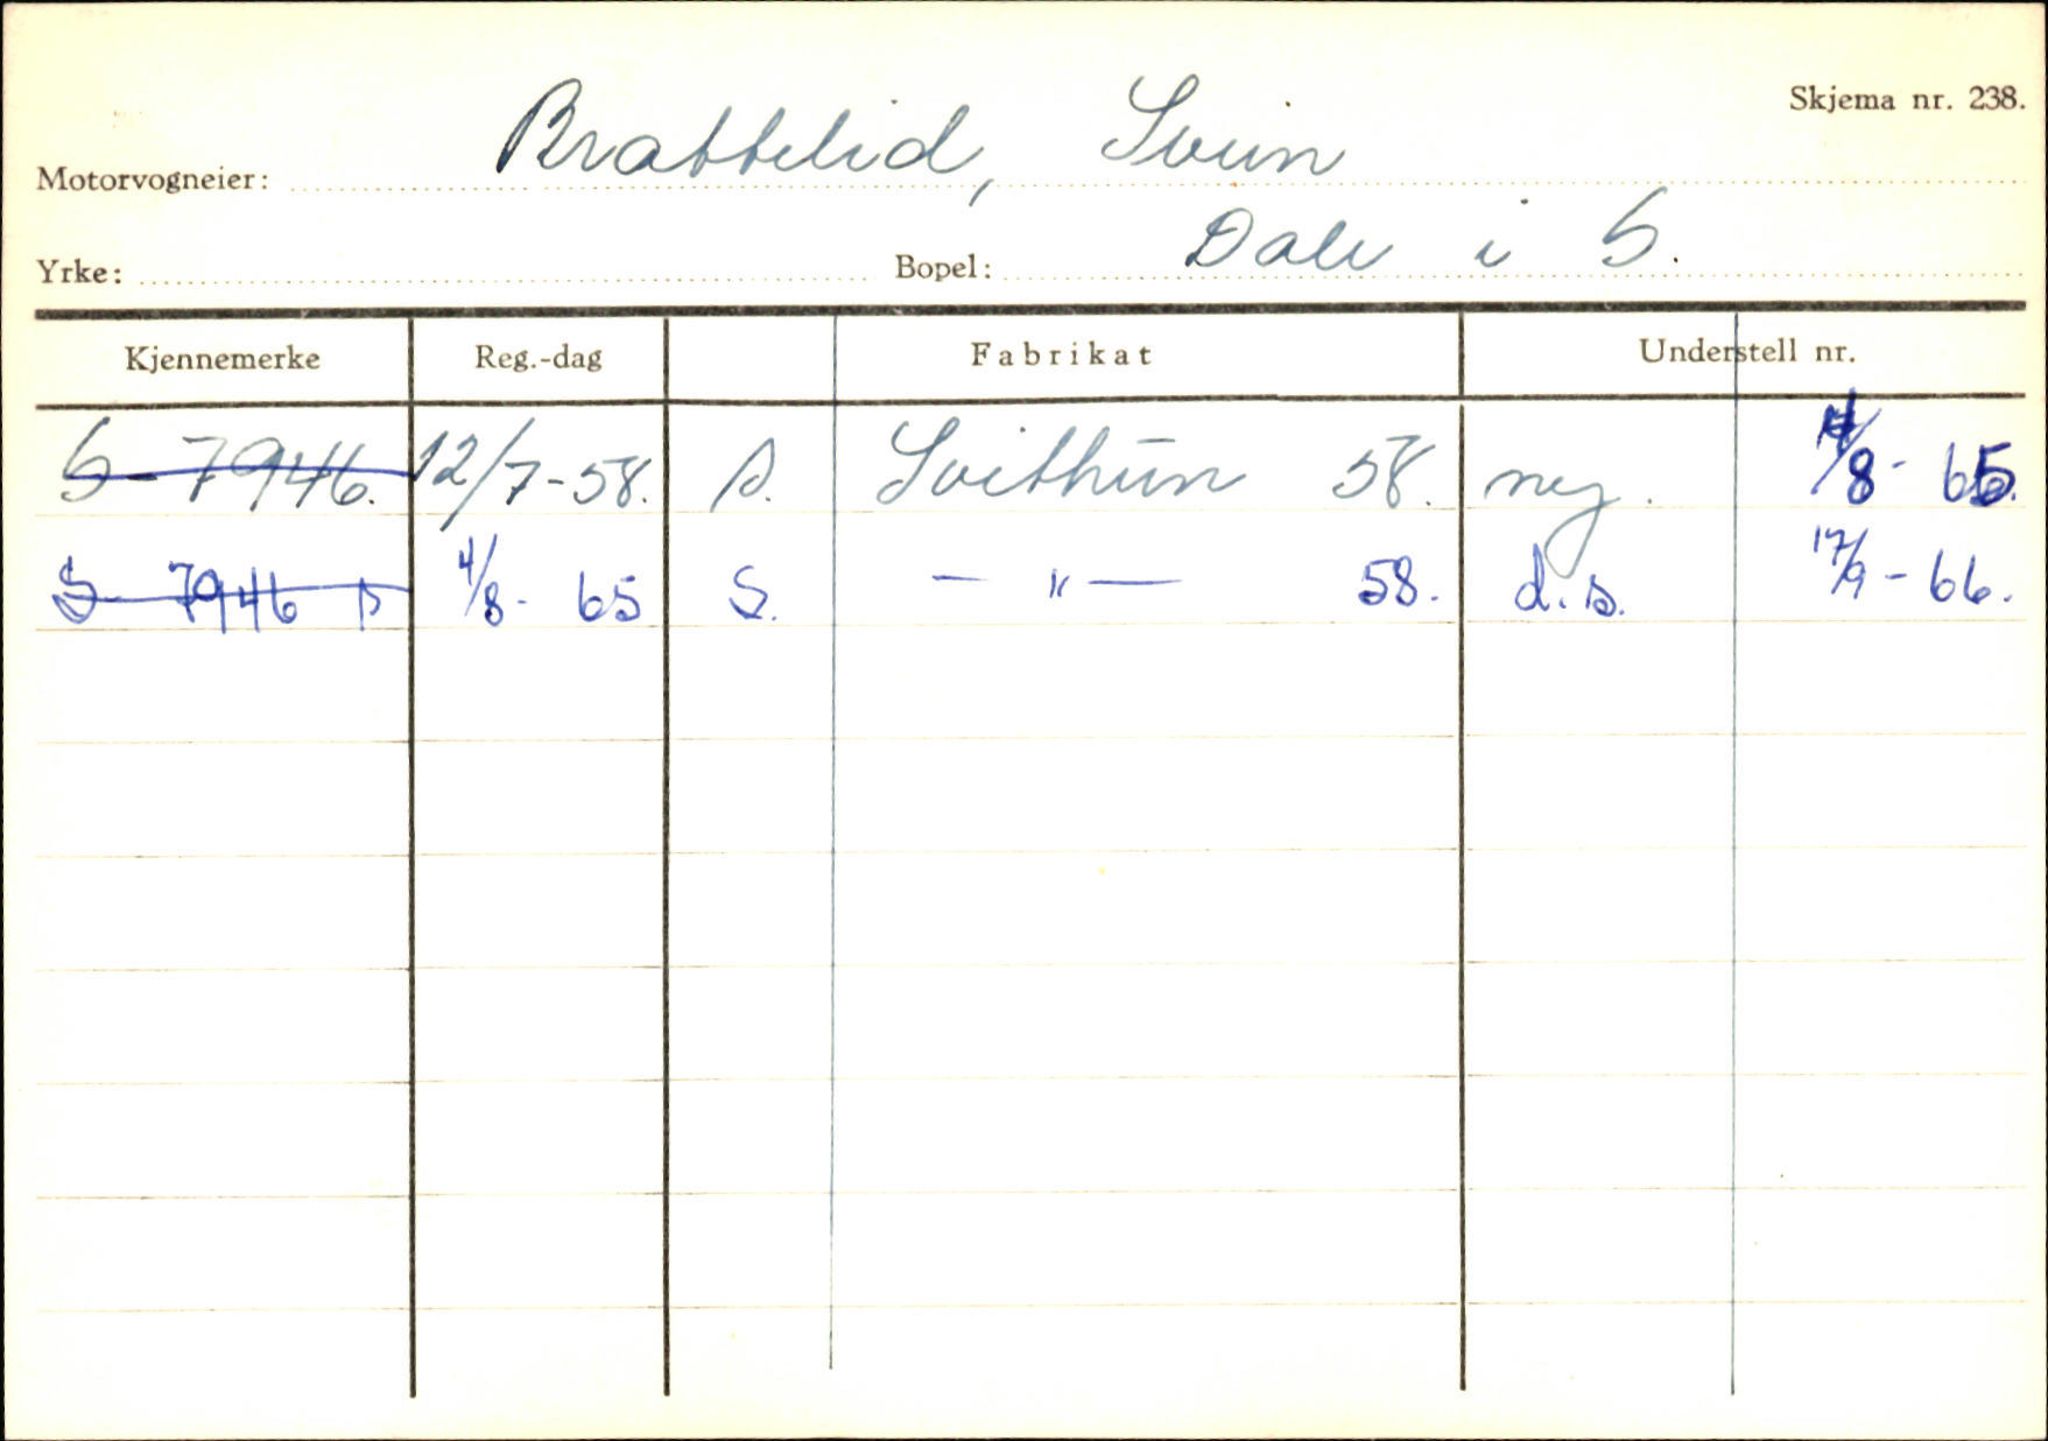 Skjema nr. 238.
Motorvogneier: Brattelid, Svein
Yrke: Bopel: Dale i S.
Kjennemerke Reg.-dag Fabrikat Understell nr.
S-7946. 12/7-58. s. Svithun 58. 4/8-65.
S-7946 s 4/8-65 S. —"— 58. d.s. 17/9-66.